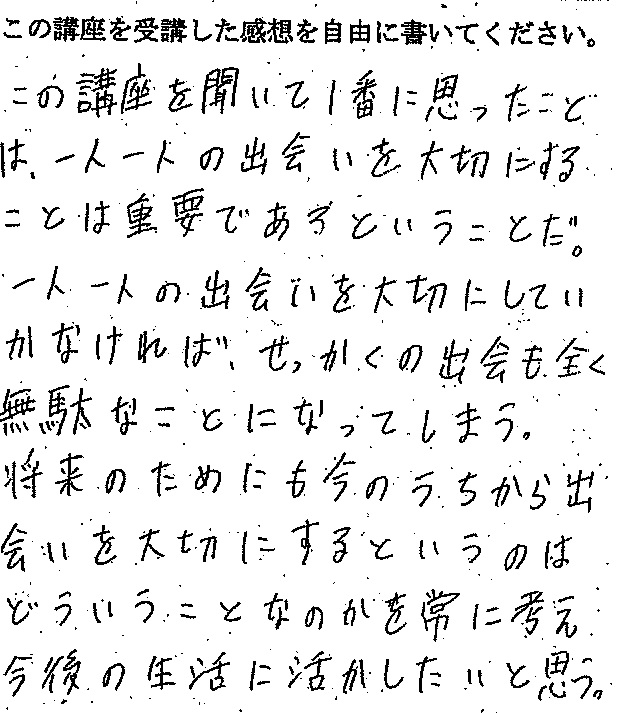 この講座を受講した感想を自由に書いてください。
この講座を聞いて1番に思ったこと
は、一人一人の出会いを大切にする
ことは重要であるということだ。
一人一人の出会いを大切にしてい
かなければ、せっかくの出会も全く
無駄なことになってしまう。
将来のためにも今のうちから出
会いを大切にするというのは
どういうことなのかを常に考え
今後の生活に活かしたいと思う。